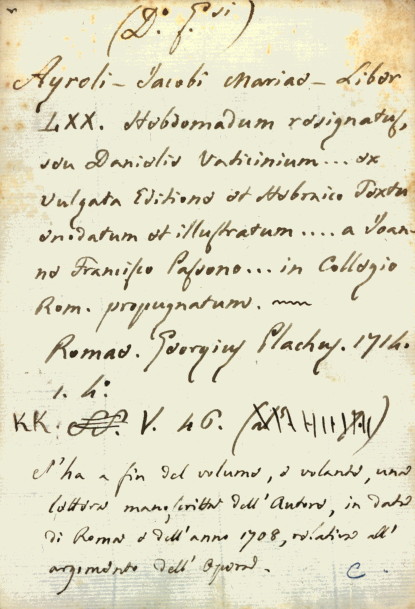 (D. G. Gsi)
Ayroli – Jacobi Mariae – Liber
LXX. Hebdomadum resignatus,
seu Danielis Vaticinium ... ex
Vulgata Editione et Hebraico Textu
enodatum et illustratum .... a Joan-
ne Francisco Passono... in Collegio
Rom. propugnatum.
Romae. Georgius Plachus. 1714.
1. 4°
KK. V. 46.
S'ha a fin del volume, e volante, una
lettera manoscritta dell'Autore, in data
di Roma e dell'anno 1708, relativa all'
argomento dell'Opera. C.